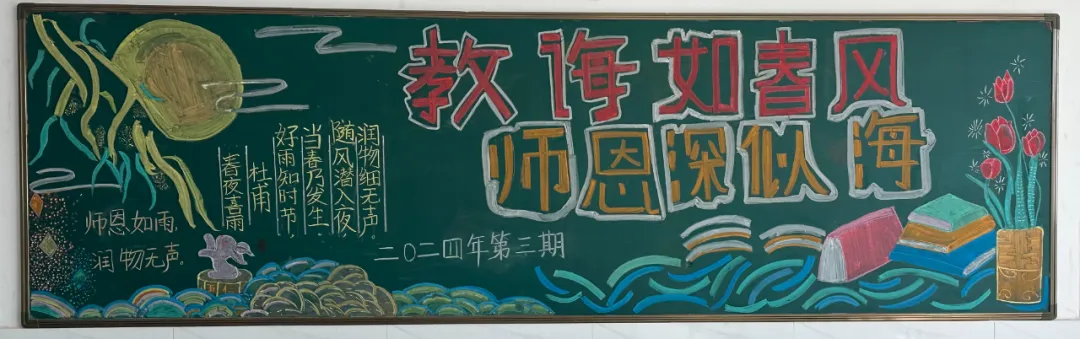 教诲如春风
师恩深似海
春夜喜雨
杜甫
好雨知时节,
当春乃发生
随风潜入夜,
润物细无声。
师恩如雨,
润物无声。
二〇二四年第三期